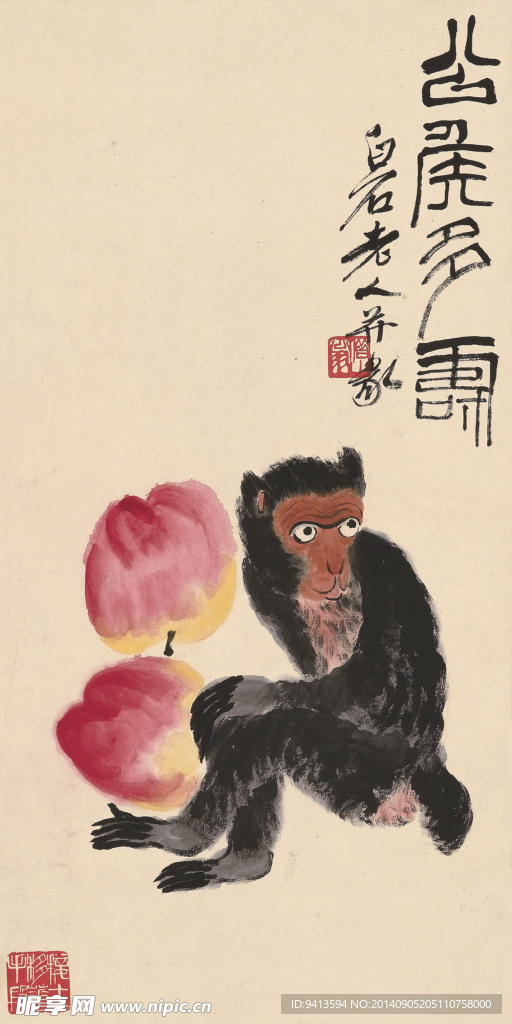 公侯多壽
白石老人并篆
借山翁
接木移花手段
昵享网 www.nipic.cn
ID:9413594 NO:20140905205110758000